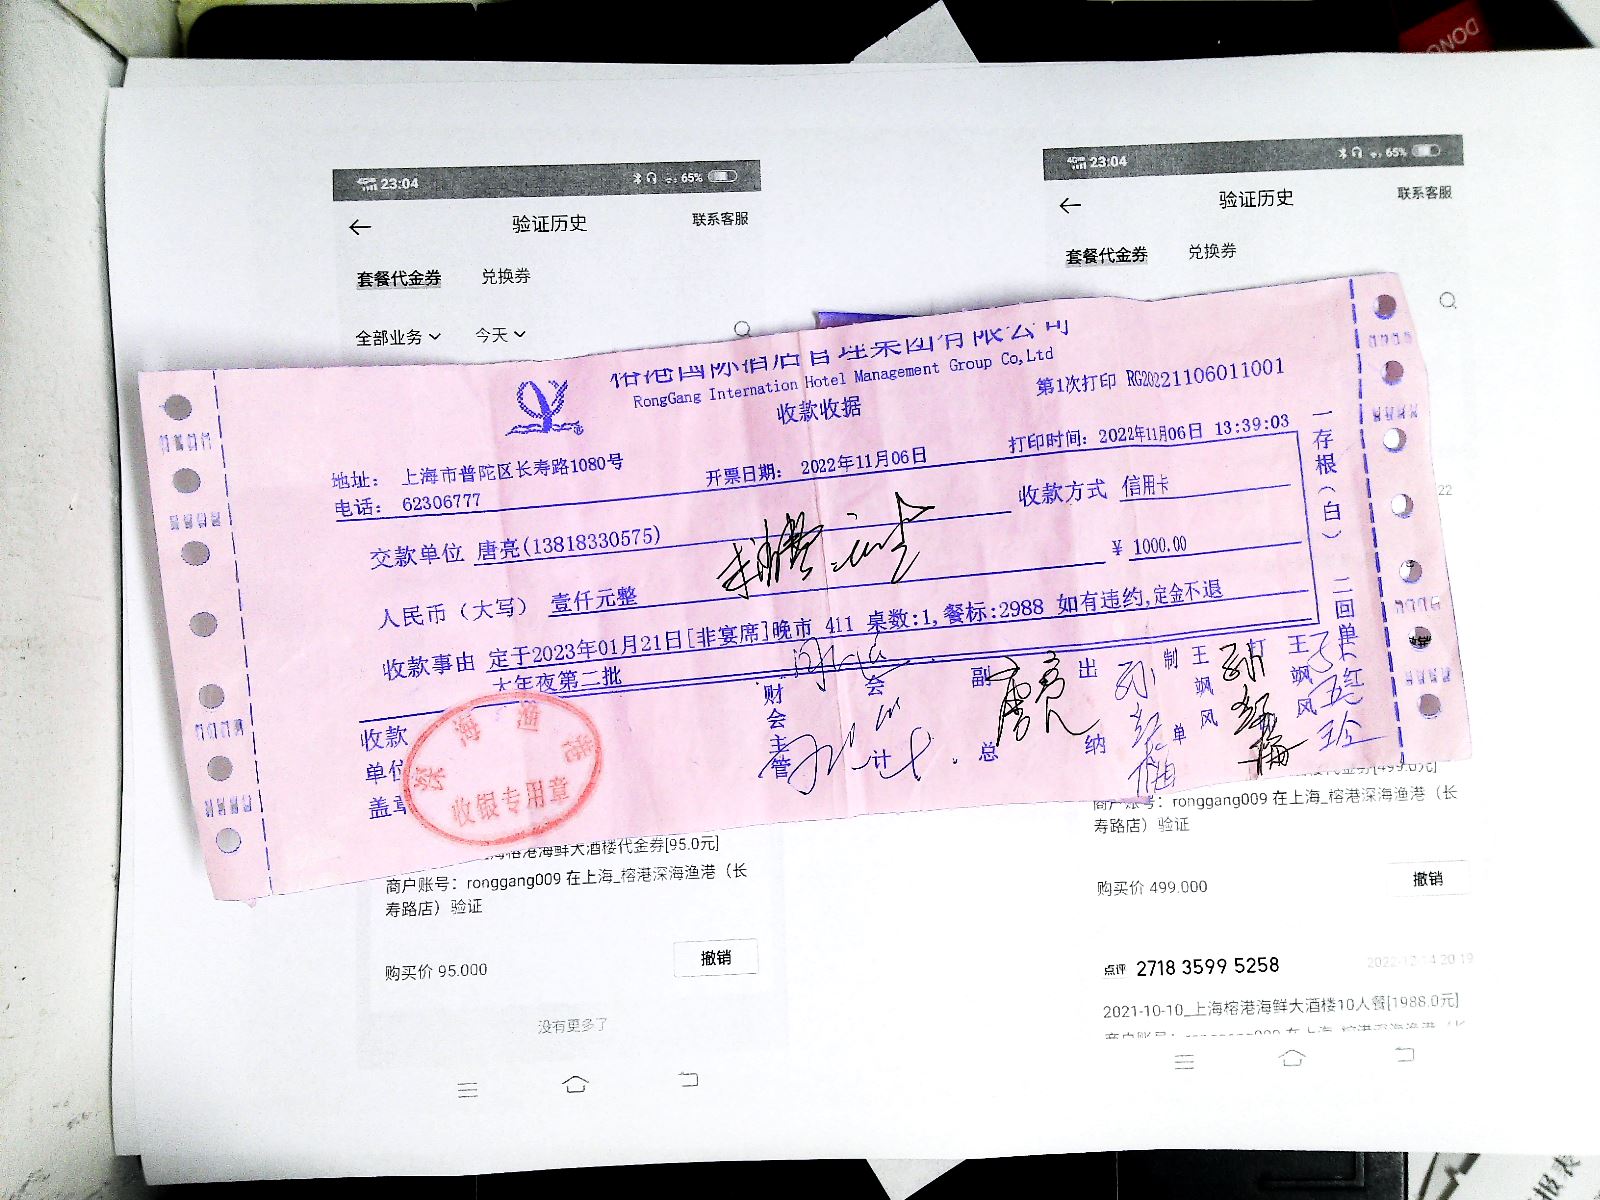 DONG
4G 23:04 65%
验证历史 联系客服
套餐代金券 兑换券
全部业务 今天
4G 23:04 65%
验证历史 联系客服
套餐代金券 兑换券
榕港国际酒店管理集团有限公司
RongGang Internation Hotel Management Group Co,Ltd
收款收据
第1次打印 RG20221106011001
地址: 上海市普陀区长寿路1080号
电话: 62306777
开票日期: 2022年11月06日
打印时间: 2022年11月06日 13:39:03
交款单位 唐亮(13818330575)
收款方式 信用卡
人民币（大写） 壹仟元整
¥ 1000.00
收款事由 定于2023年01月21日[非宴席]晚市 411 桌数:1,餐标:2988 如有违约,定金不退
大年夜第二批
收款
单位
盖章
收银专用章
财会主管
会计
副总
唐亮
出纳
制单
王飒风
打
王飒风
一存根（白） 二回单
22
上海榕港海鲜大酒楼代金券[95.0元]
商户账号：ronggang009 在上海_榕港深海渔港（长
寿路店）验证
购买价 95.000
撤销
没有更多了
代金券[499.0元]
商户账号：ronggang009 在上海_榕港深海渔港（长
寿路店）验证
购买价 499.000
撤销
点评 2718 3599 5258 2022-12-14 20:19
2021-10-10_上海榕港海鲜大酒楼10人餐[1988.0元]
商户账号：ronggang009 在上海_榕港深海渔港（长
报表